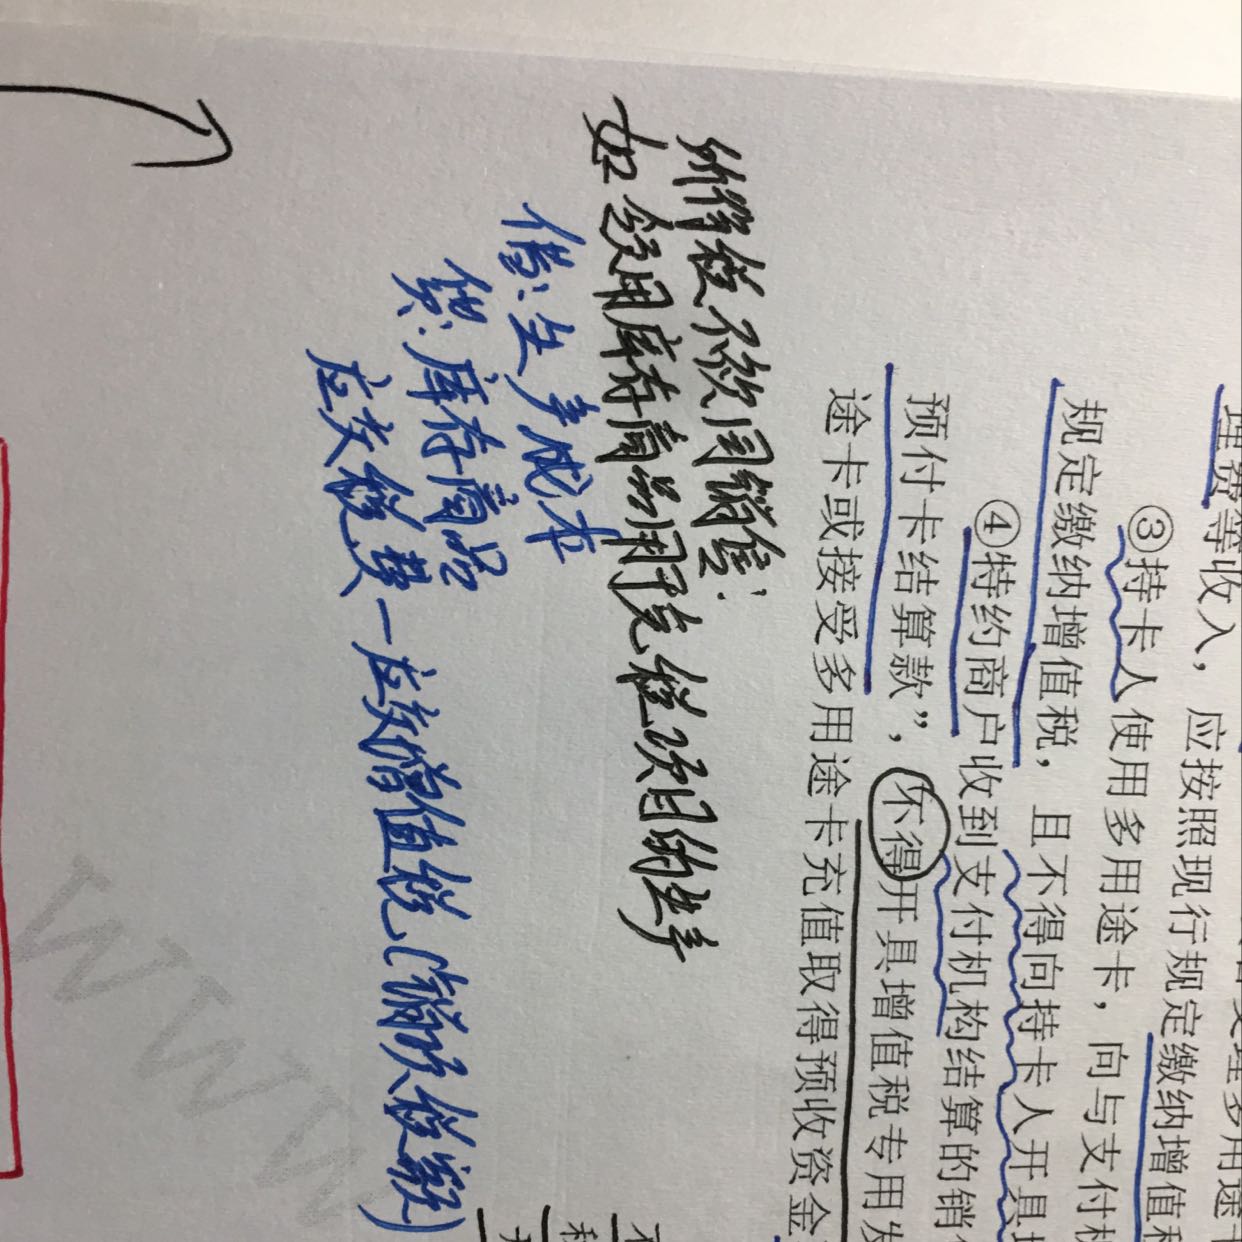 理费等收入，应按照现行规定缴纳增值
③持卡人使用多用途卡，向与支付
规定缴纳增值税，且不得向持卡人开具
④特约商户收到支付机构结算的销
预付卡结算款”，不得开具增值税专用发
途卡或接受多用途卡充值取得预收资金
所得税不做同销售：
如领用库存商品用于免税项目的生产
借：生产成本
贷：库存商品
应交税费－应交增值税（销项税额）
WWW